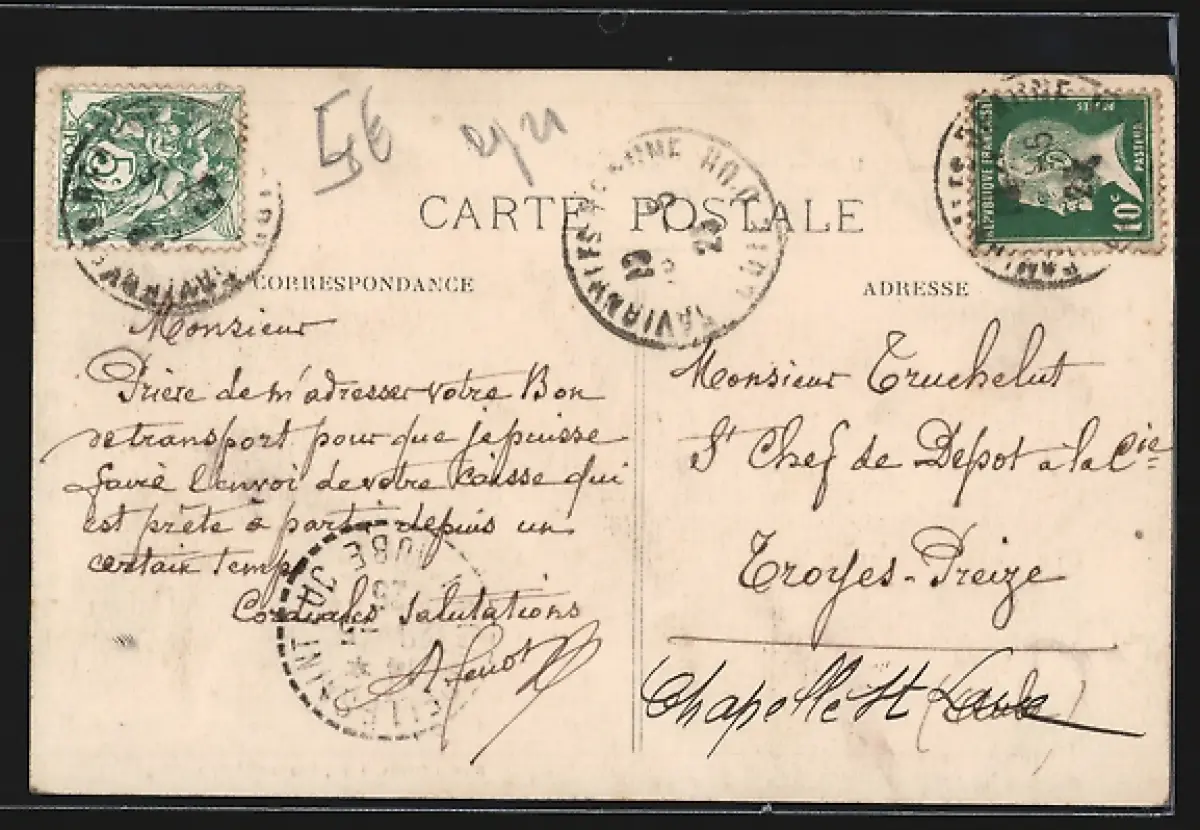 CARTE POSTALE
CORRESPONDANCE
Monsieur
Prière de m'adresser votre Bon
de transport pour que je puisse
faire l'envoi de votre Caisse qui
est prête à partir depuis un
certain temps
Cordiales Salutations
ADRESSE
Monsieur Truchelut
St Chef de Depot à la Cie
Troyes-Preize
Chapelle St
5
POSTES
REPUBLIQUE FRANÇAISE
PASTEUR
10c